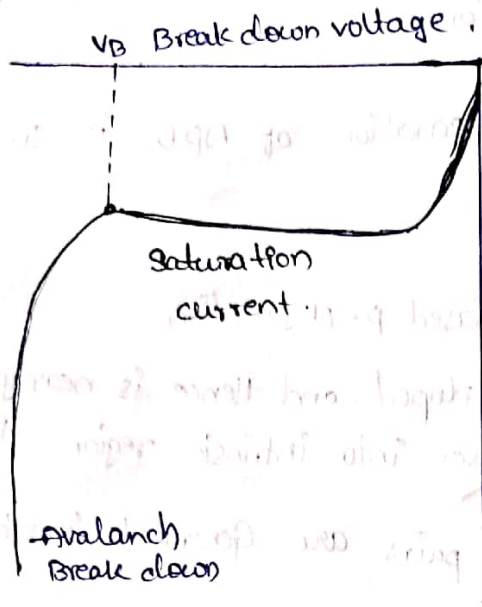 VB Break down voltage.
Saturation
current.
Avalanch
Break down